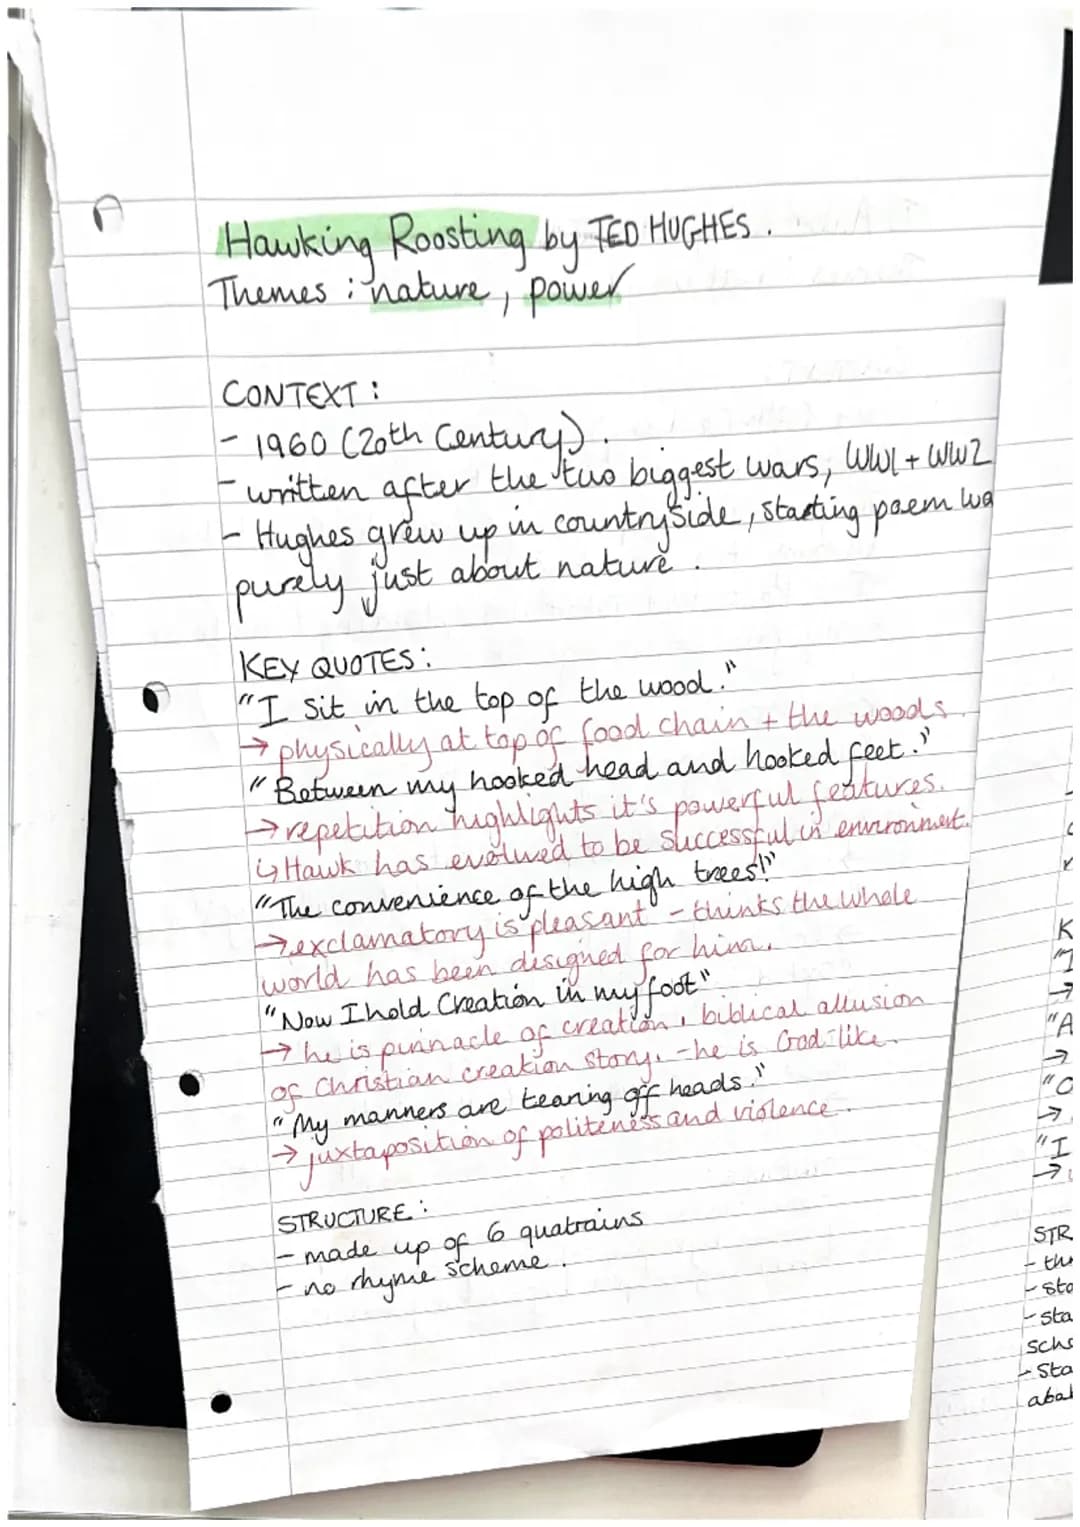 Hawking Roosting by TED HUGHES.
Themes : nature, power
CONTEXT :
- 1960 (20th Century).
- written after the two biggest wars, WW1 + WW2
- Hughes grew up in countryside, starting poem wa
purely just about nature.
KEY QUOTES :
"I sit in the top of the wood."
→ physically at top of food chain + the woods.
"Between my hooked head and hooked feet."
→ repetition highlights it's powerful features.
↳ Hawk has evolved to be successful in environment.
"The convenience of the high trees!"
→ exclamatory is pleasant - thinks the whole
world has been designed for him.
"Now I hold Creation in my foot"
→ he is pinnacle of creation, biblical allusion
of Christian creation story. - he is God-like.
"My manners are tearing off heads."
→ juxtaposition of politeness and violence.
STRUCTURE :
- made up of 6 quatrains
- no rhyme scheme.
K
"I
→
"A
→
"O
→
"I
→
STR
- th
- sta
- sta
sche
- Sta
abab